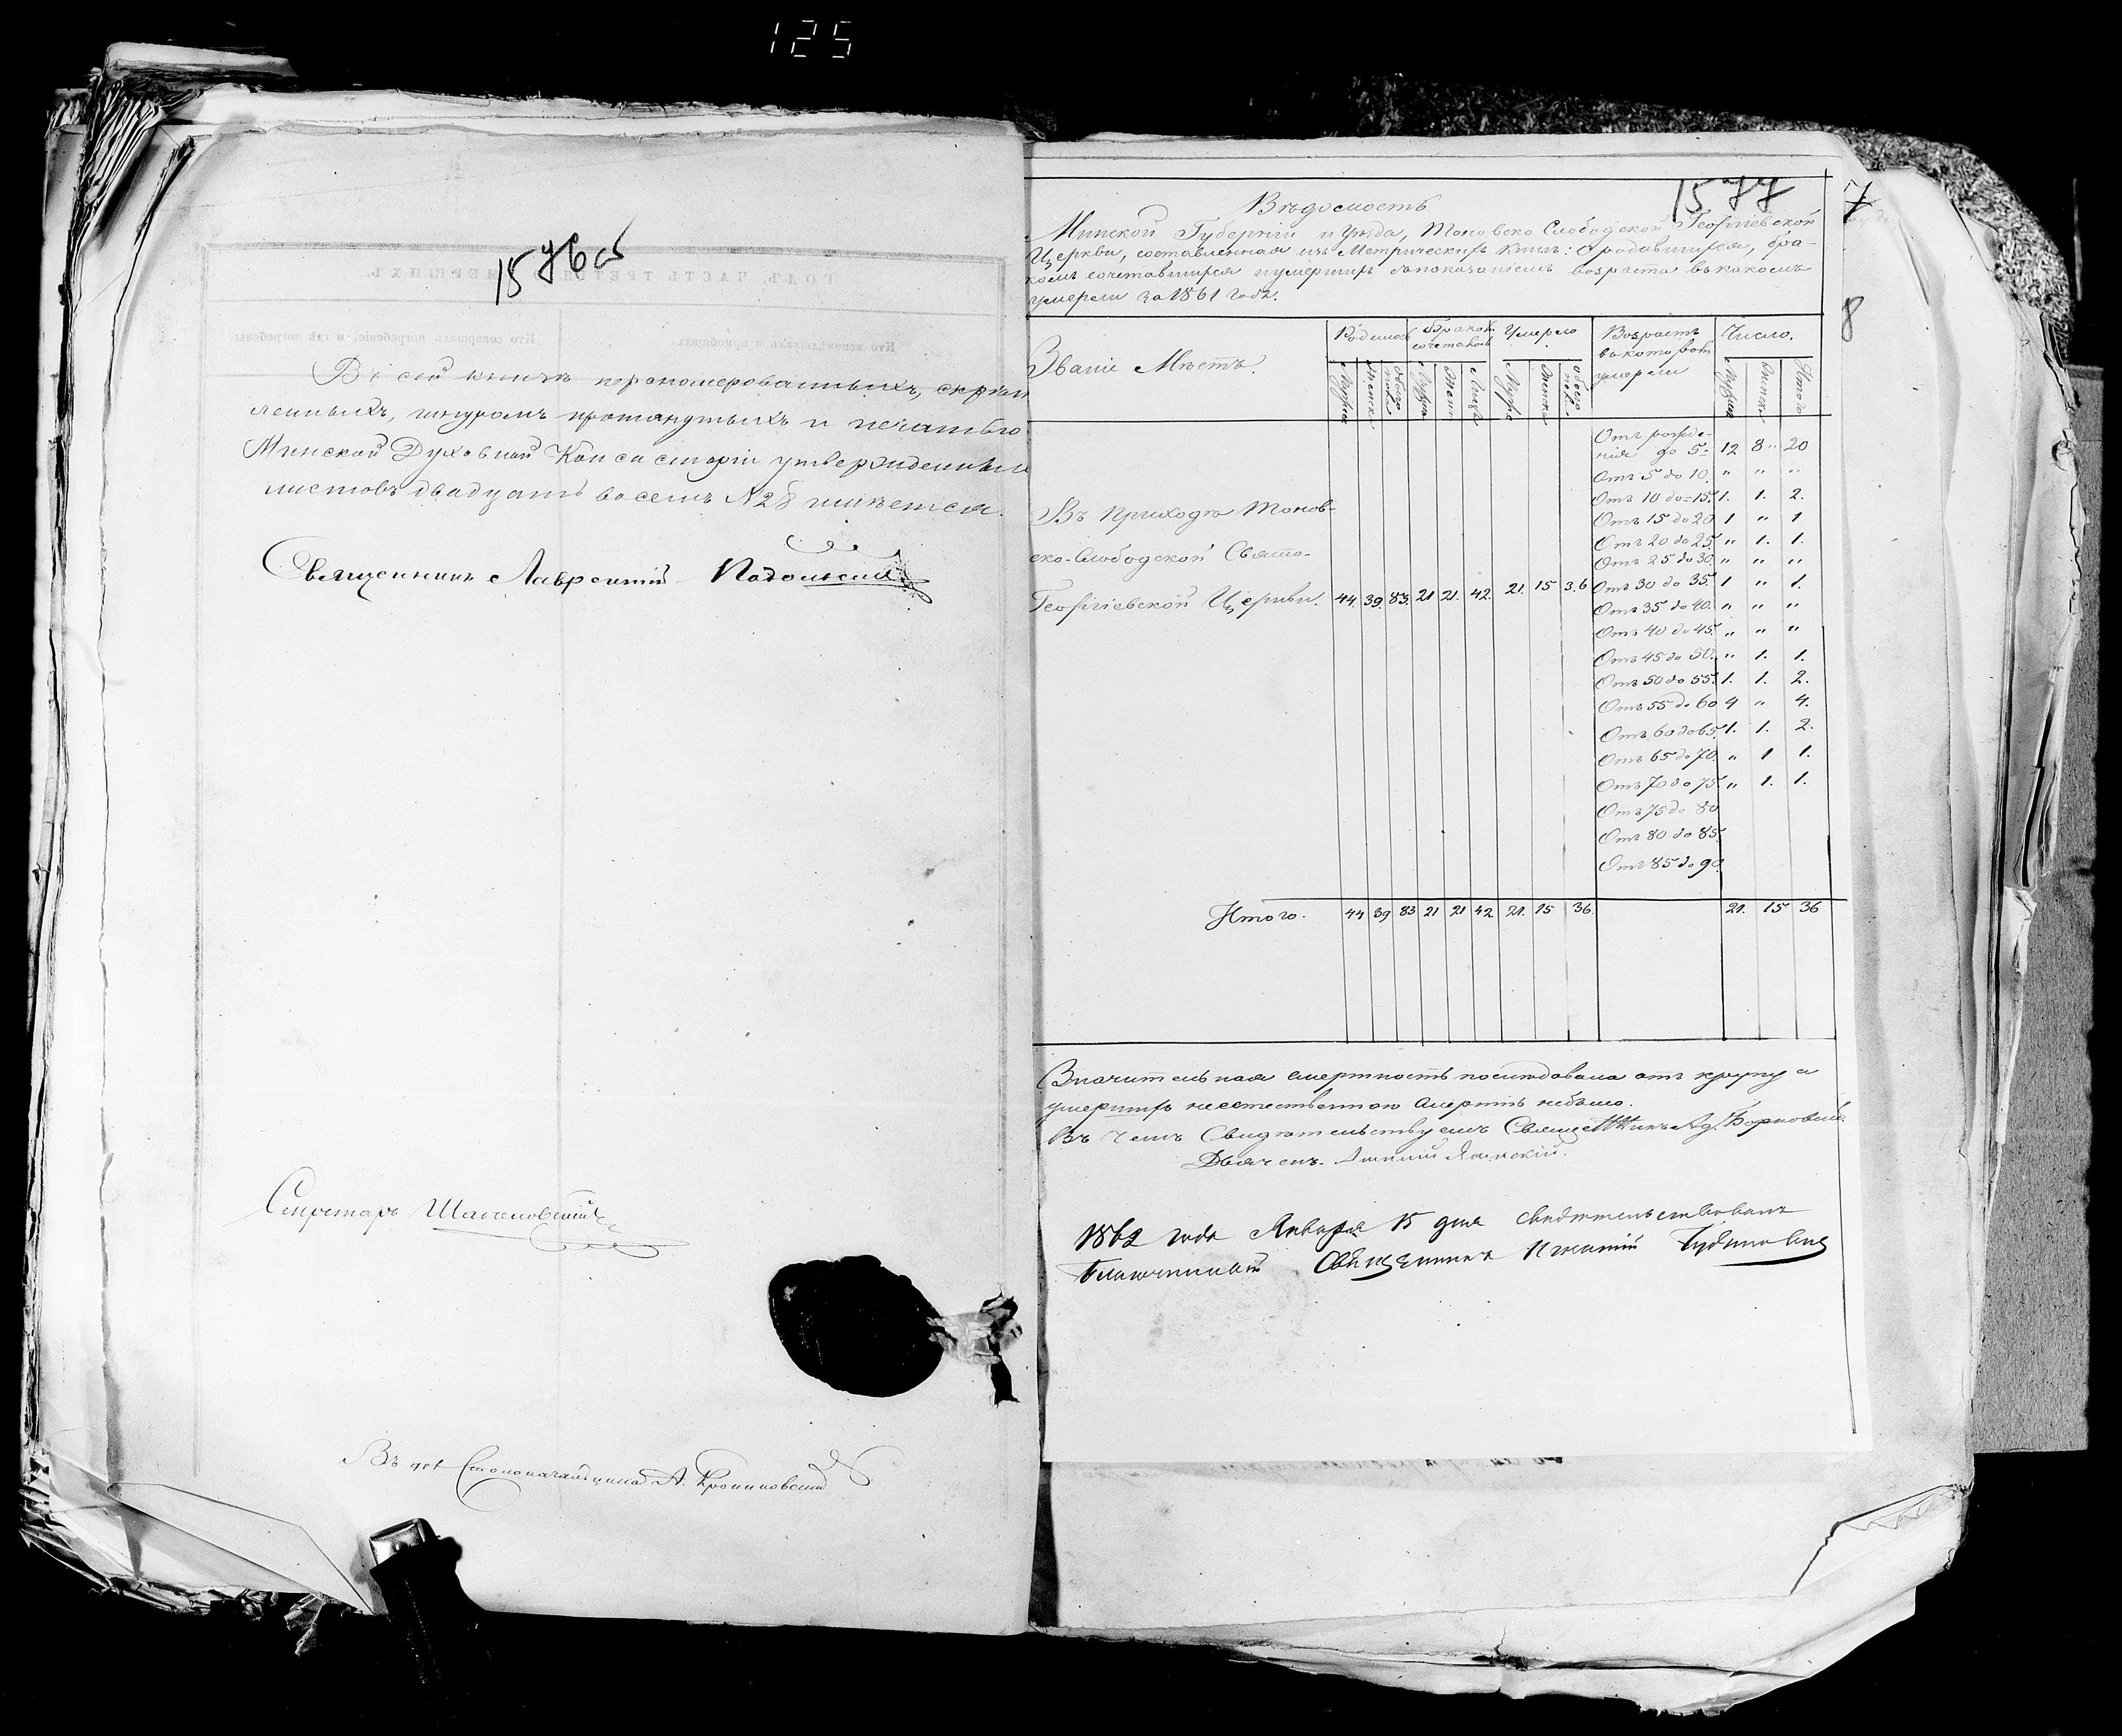 125
1576об
Въ сей книгѣ перенумерованныхъ, скрѣп
ленныхъ, шнуромъ протянутыхъ и печатью
Минской Духовной Консисторіи утвержденныхъ
листовъ двадцать восемь №28 имѣется.
Священникъ Лаврентій
Секретарь
Въ дол Столоначальника А.
1577
Вѣдомость
Минской Губерніи и Уѣзда, Тоновско Слободской Георгіевской
Церкви, составленная изъ Метрическихъ Книгъ: о родившихся, бра-
комъ сочетавшихся и умершихъ запоказаніемъ возраста въ какомъ
умерли за 1861 годъ.
Званіе Мѣстъ.
Родилось
бракомъ сочеталось
Умерло
Возрастъ въ которомъ умерли
Число.
Мужск Женск обоего пола
Женск обоего пола
Мужск Женск Итого
Отъ рожде-
нія до 5. 12 8 " 20
Отъ 5 до 10. " " "
Отъ 10 до 15. 1. 1. 2.
Отъ 15 до 20 1 " 1
Отъ 20 до 25. " 1. 1.
Отъ 25 до 30. " " "
Отъ 30 до 35. 1 " 1.
Отъ 35 до 40. " " "
Отъ 40 до 45. " " "
Отъ 45 до 50. " 1. 1.
Отъ 50 до 55. 1. 1. 2.
Отъ 55 до 60 4 " 4.
Отъ 60 до 65. 1. 1. 2.
Отъ 65 до 70. " 1 1.
Отъ 70 до 75. " 1. 1.
Отъ 75 до 80
Отъ 80 до 85.
Отъ 85 до 90.
Въ Приходѣ Тонов-
ско-Слободской Свято-
Георгіевской Церкви. 44. 39. 83. 21 21. 42. 21. 15 36
Итого. 44 39 83 21 21 42 21. 15 36. 21. 15 36
Значительная смертность послѣдовала отъ крупу а
умершихъ неестественною смертію небыло.
Въ чемъ Свидѣтельствуемъ Священникъ Ад.
Дьячекъ
1862 года Января 15 дня свидѣтельствовалъ
Благочинный Священникъ
7
8